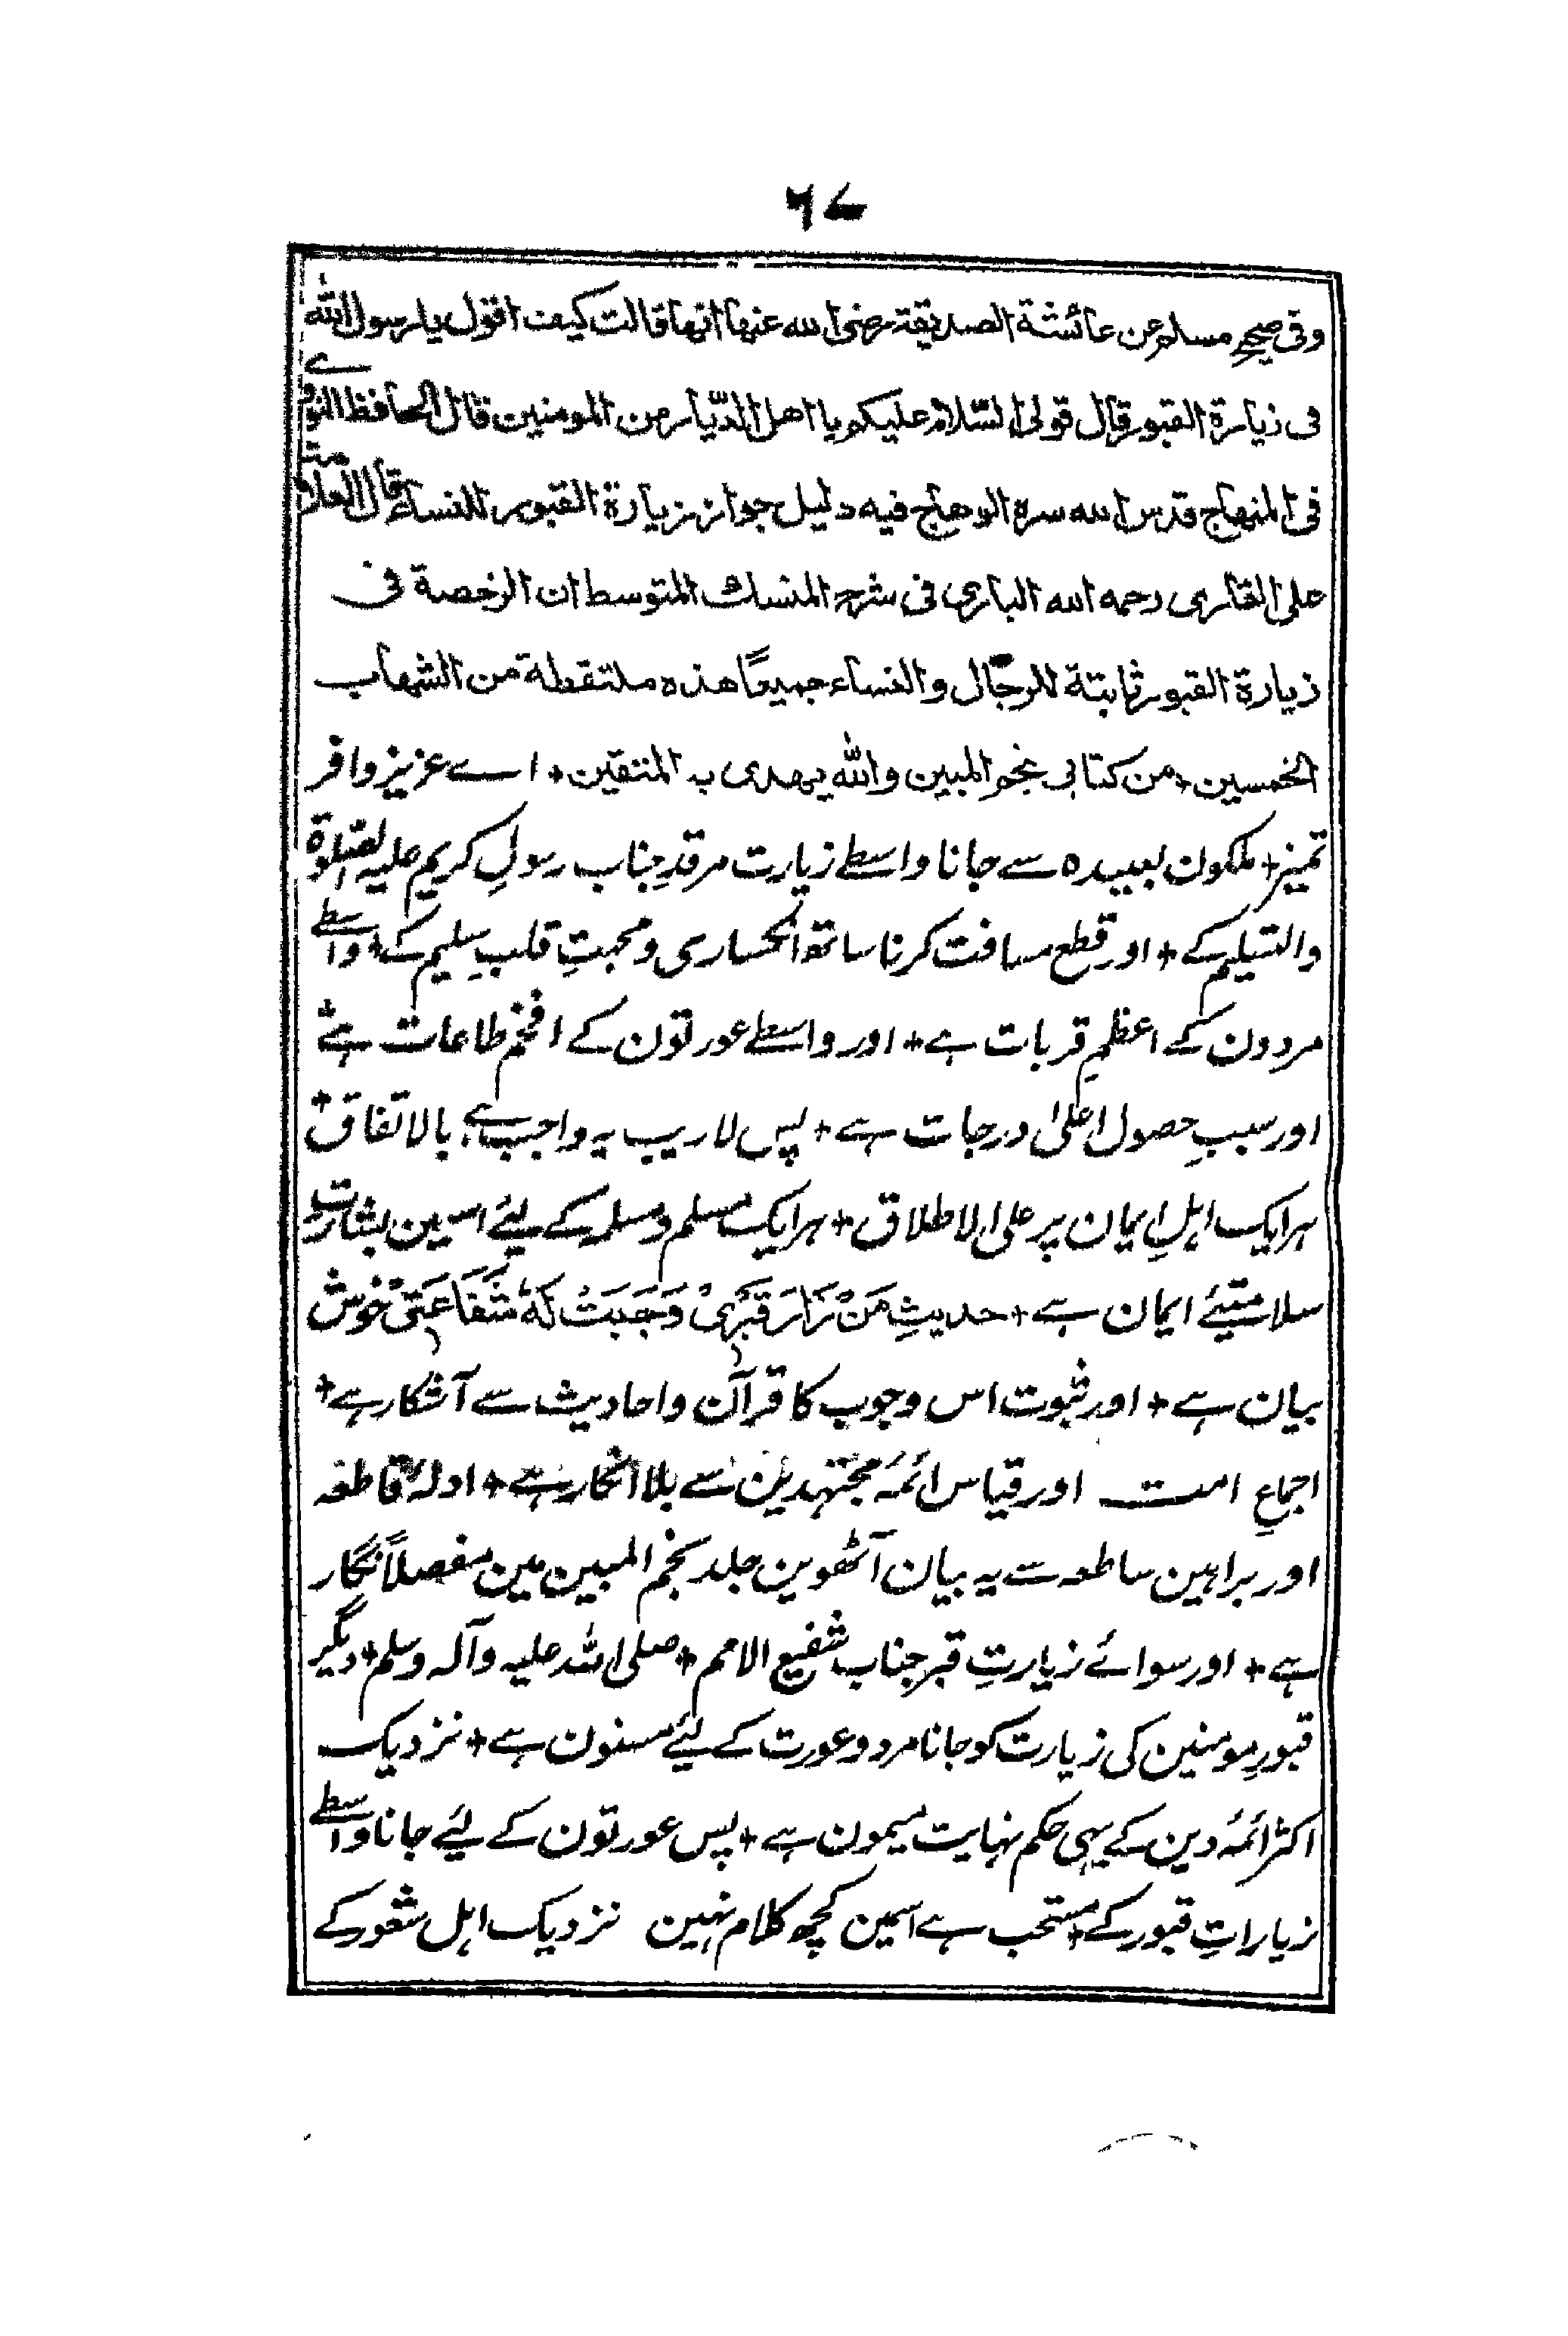 ۶۷
وفی صحیح مسلم عن عائشة الصدیقة رضی الله عنها انها قالت کیف اقول یا رسول الله
فی زیارة القبور قال قولی السّلام علیکم یا اهل الدّیار من المومنین قال الحافظ النووی
فی المنهاج قدس الله سره الوهاج فیه دلیل جواز زیارة القبور للنساء قال العلامة
علی القاری رحمه الله الباری فی شرح المنسك المتوسط ان الرخصة فی
زیارة القبور ثابتة للرجّال والنساء جمیعاً هذه ملتقطة من الشهاب
الخمسین + من کتابی نجم المبین والله یهدی به المتقین + اے عزیز وافر
تمیز + ملکون بعیدہ سے جانا واسطے زیارت مرقدِ جناب رسولِ کریم علیہ الصّلوة
والتسلیم کے + اور قطع مسافت کرنا ساتھ انکساری و محبتِ قلبِ سلیم کے + واسطے
مردون کے اعظمِ قربات ہے + اور واسطے عورتون کے افخم طاعات ہے +
اور سببِ حصول اعلیٰ درجات ہے + پس لاریب یہ واجب ہے بالاتفاق +
ہر ایک اہلِ ایمان پر علی الاطلاق + ہر ایک مسلم و مسلمہ کے لیئے اسمین بشارت
سلامتیئے ایمان ہے + حدیثِ مَنْ زَارَ قَبْرِیْ وَجَبَتْ لَهٗ شَفَاعَتِیْ خوش
بیان ہے + اور ثبوت اس وجوب کا قرآن واحادیث سے آشکار ہے +
اجماعِ امت اور قیاس ائمۂ مجتہدین سے بلا انکار ہے + ادلۂ قاطعہ
اور براہین ساطعہ سے یہ بیان آٹھوین جلد نجم المبین مین مفصلاً نگار
ہے + اور سوائے زیارتِ قبر جناب شفیع الامم + صلی اللہ علیہ وآلہ وسلم + دیگر
قبورِ مومنین کی زیارت کو جانا مرد و عورت کے لیئے مسنون ہے + نزدیک
اکثر ائمۂ دین کے یہی حکم نہایت میمون ہے + پس عورتون کے لیئے جانا واسطے
زیاراتِ قبور کے + مستحب ہے اسمین کچھ کلام نہین نزدیک اہل شعور کے